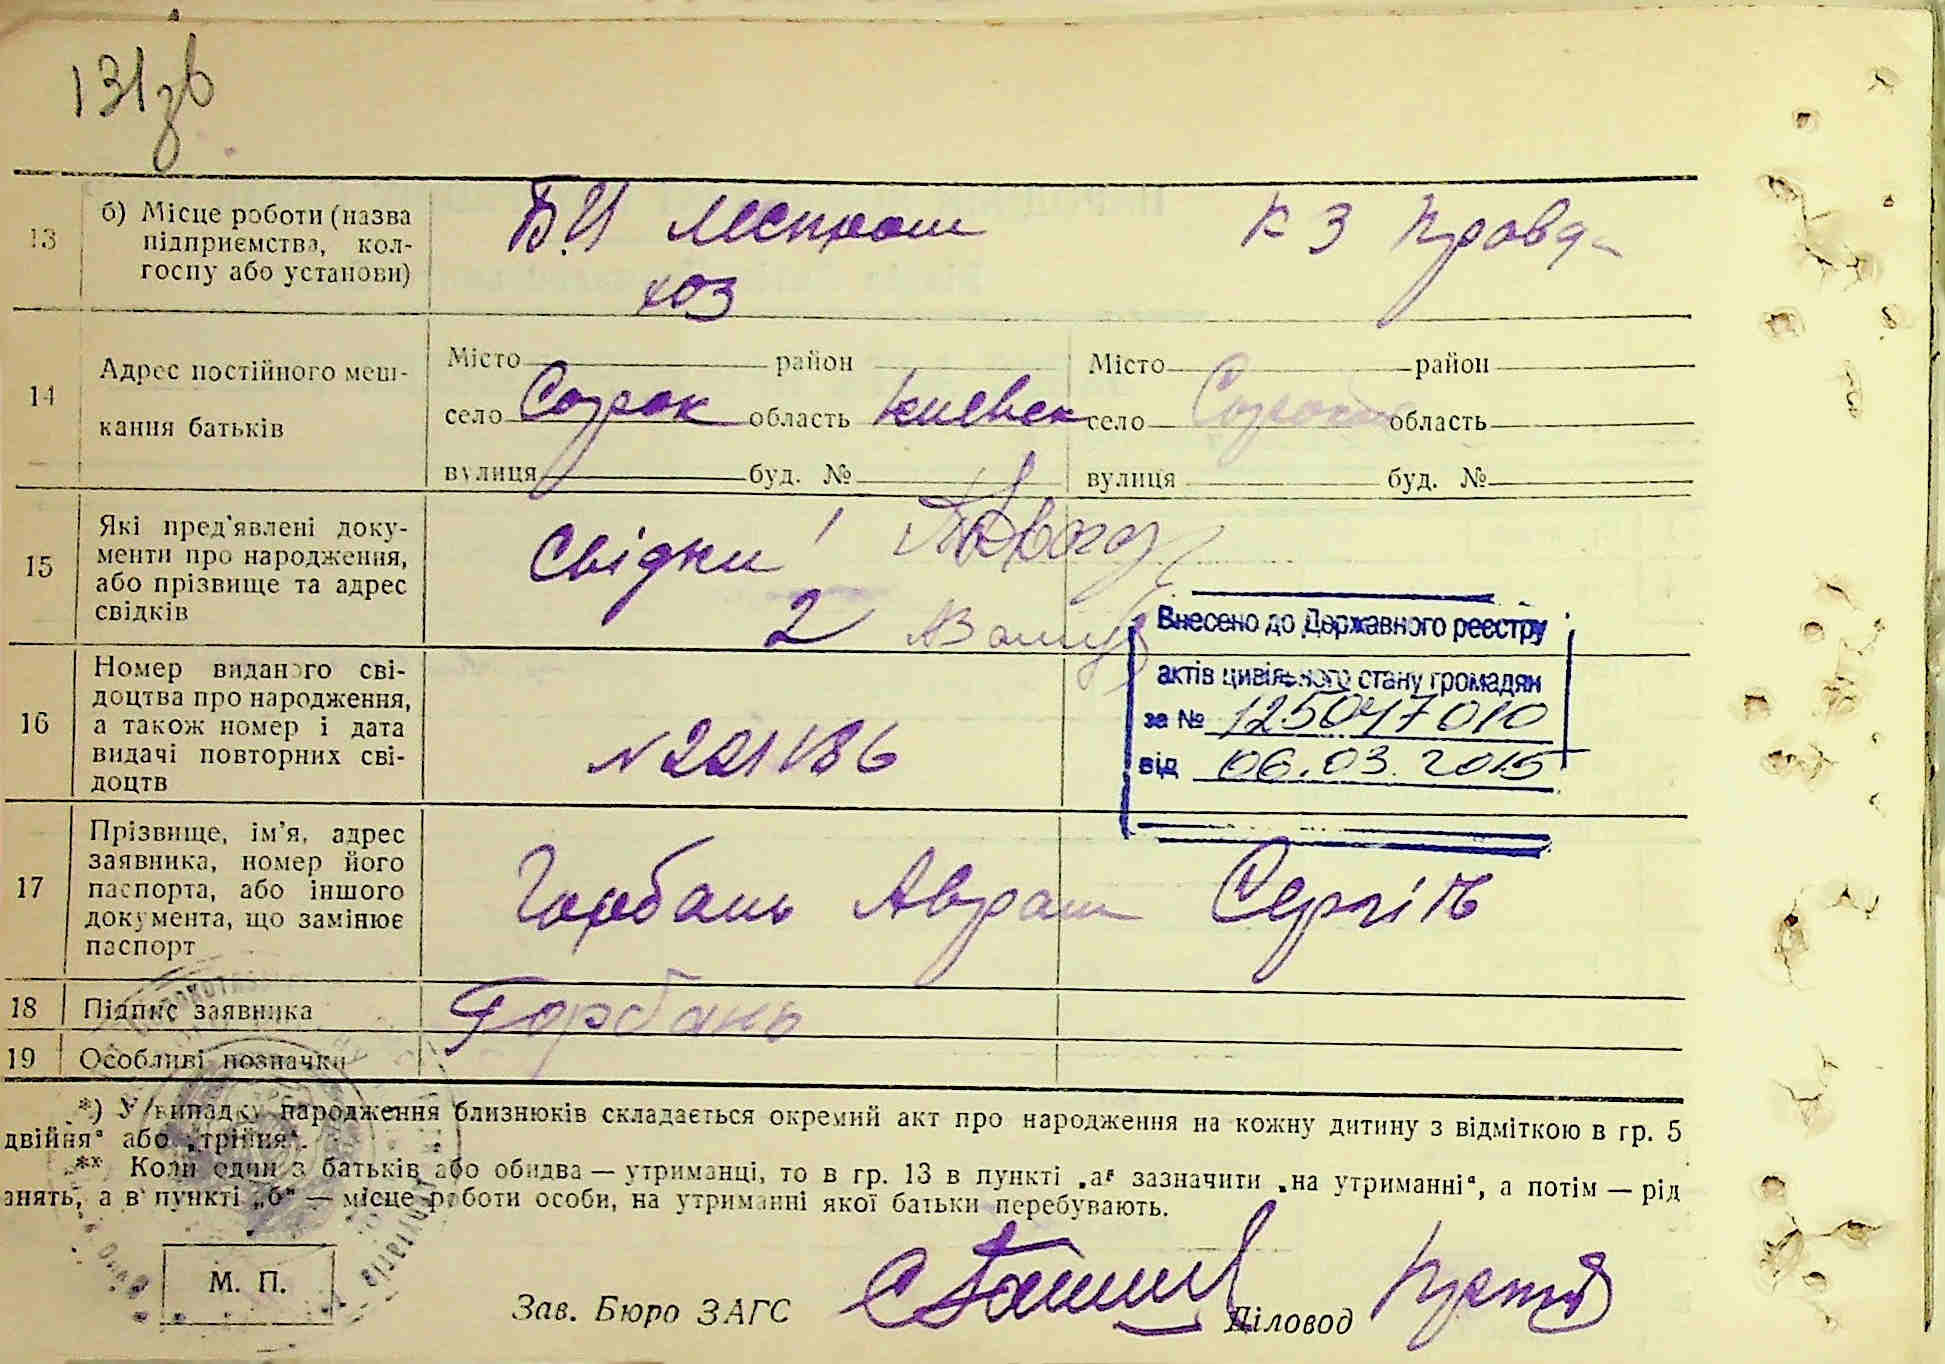 131зв
13
б) Місце роботи (назва
підприємства, кол-
госпу або установи)
Б.И леспром
хоз
К З Правда
14
Адрес постійного меш-
кання батьків
Місто район
село Сорок область Киевск
вулиця буд. №
Місто район
село Сорок область
вулиця буд. №
15
Які пред'явлені доку-
менти про народження,
або прізвище та адрес
свідків
Свідки 1
2
16
Номер виданого сві-
доцтва про народження,
а також номер і дата
видачі повторних сві-
доцтв
N 221186
Внесено до Державного реєстру
актів цивільного стану громадян
за № 125047010
від 06.03.2015
17
Прізвище, ім'я, адрес
заявника, номер його
паспорта, або іншого
документа, що замінює
паспорт
Горбань Аврам Сергіїв
18 Підпис заявника
Горбань
19 Особливі позначки
*) У випадку народження близнюків складається окремий акт про народження на кожну дитину з відміткою в гр. 5
двійня" або „трійня".
** Коли один з батьків або обидва — утриманці, то в гр. 13 в пункті „а" зазначити „на утриманні", а потім — рід
знять, а в пункті „б" — місце роботи особи, на утриманні якої батьки перебувають.
М. П.
Зав. Бюро ЗАГС
Діловод